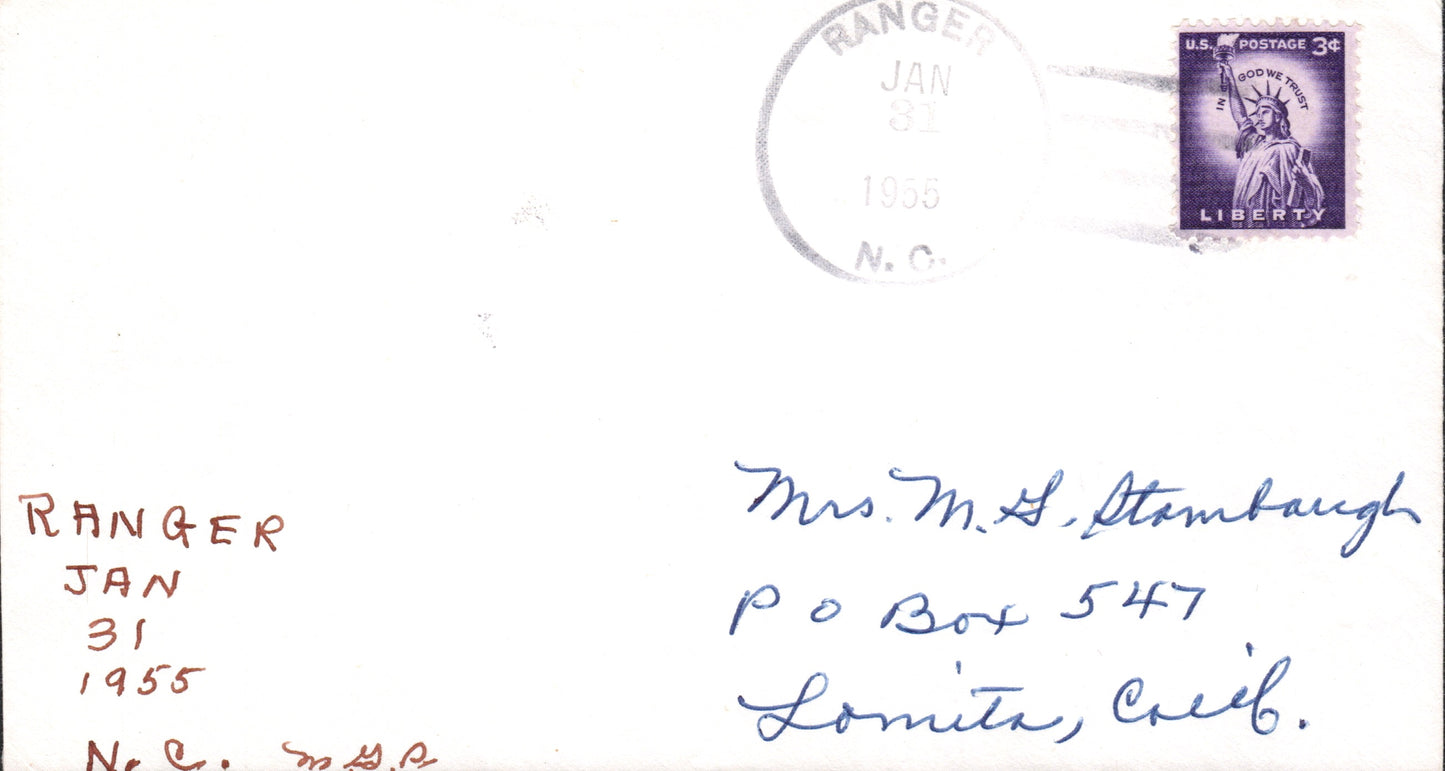 RANGER
JAN
31
1955
N. C.
U.S. POSTAGE 3¢
IN GOD WE TRUST
LIBERTY
Mrs. M. G. Stambaugh
P O Box 547
Lomita, Calif.
RANGER
JAN
31
1955
N. C. MGS